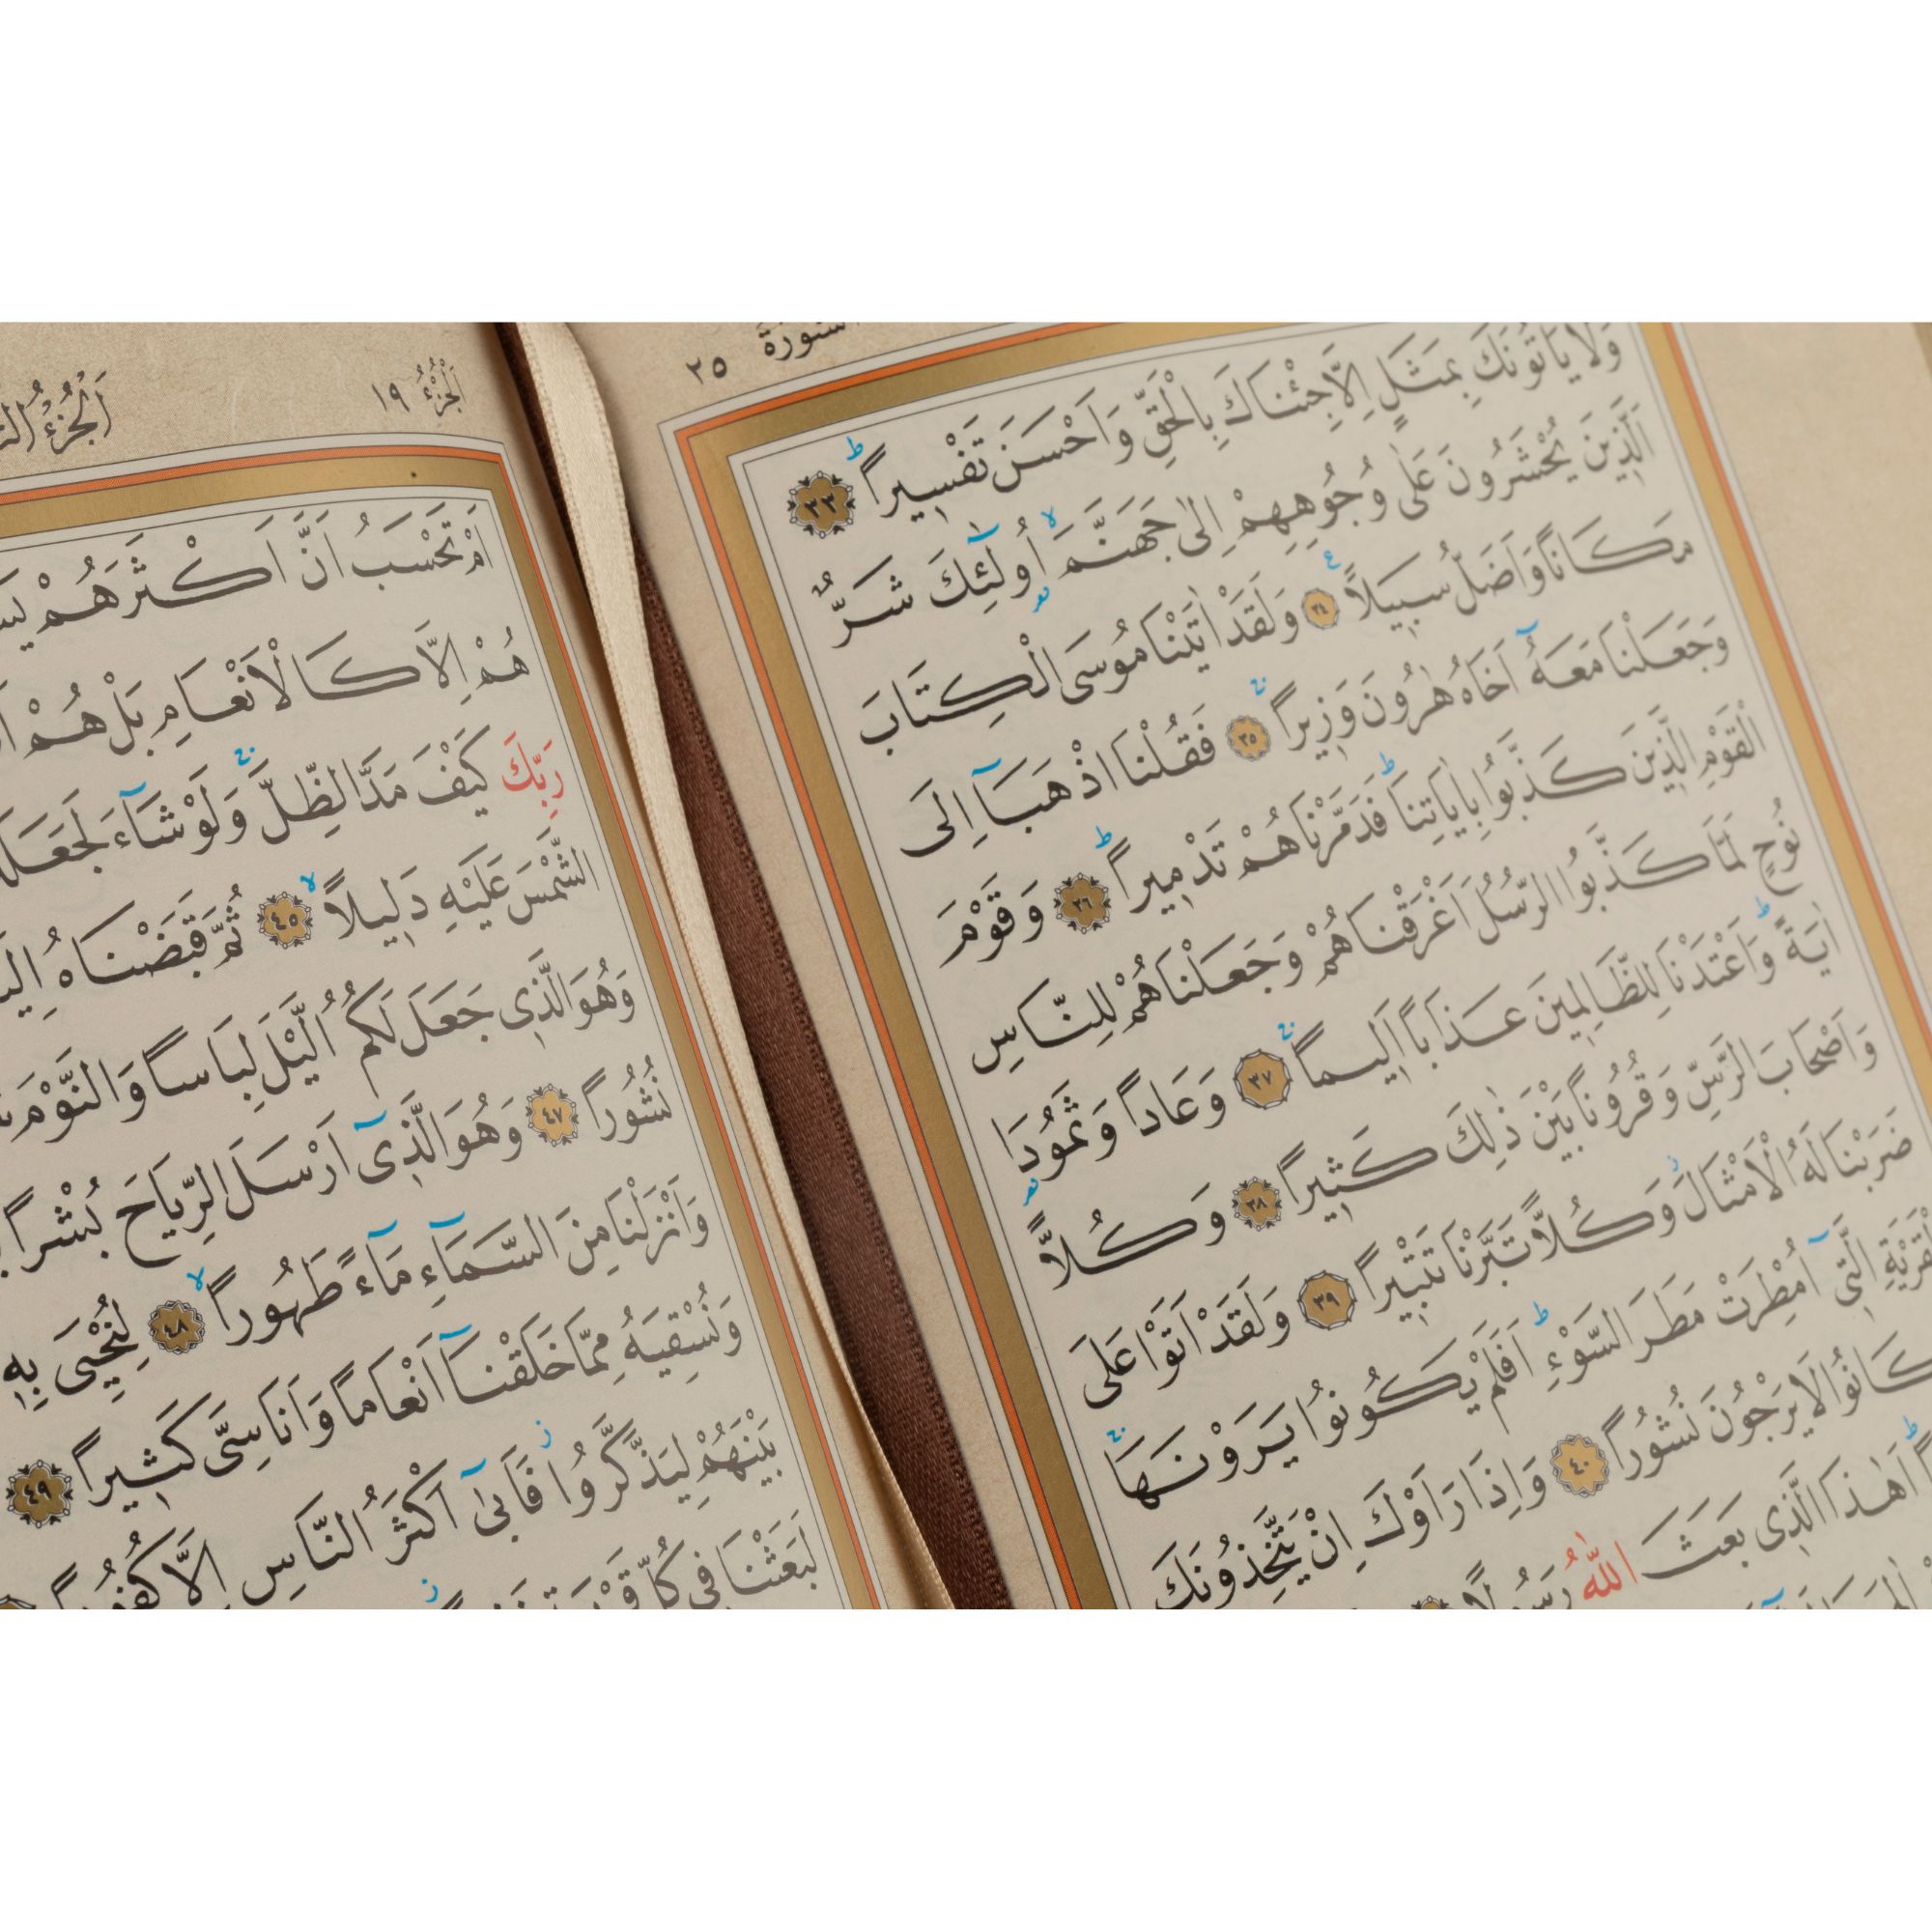 سورة ٢٥
وَلَا يَأْتُونَكَ بِمَثَلٍ اِلَّا جِئْنَاكَ بِالْحَقِّ وَاَحْسَنَ تَفْسِيراًۜ ﴿٣٣﴾
اَلَّذ۪ينَ يُحْشَرُونَ عَلٰى وُجُوهِهِمْ اِلٰى جَهَنَّمَۙ اُو۬لٰٓئِكَ شَرٌّ
مَكَاناً وَاَضَلُّ سَب۪يلاًۚ ﴿٣٤﴾ وَلَقَدْ اٰتَيْنَا مُوسَى الْكِتَابَ
وَجَعَلْنَا مَعَهُٓ اَخَاهُ هٰرُونَ وَز۪يراًۚ ﴿٣٥﴾ فَقُلْنَا اذْهَبَٓا اِلَى
الْقَوْمِ الَّذ۪ينَ كَذَّبُوا بِاٰيَاتِنَاۜ فَدَمَّرْنَاهُمْ تَدْم۪يراًۜ ﴿٣٦﴾ وَقَوْمَ
نُوحٍ لَمَّا كَذَّبُوا الرُّسُلَ اَغْرَقْنَاهُمْ وَجَعَلْنَاهُمْ لِلنَّاسِ
اٰيَةًۜ وَاَعْتَدْنَا لِلظَّالِم۪ينَ عَذَاباً اَل۪يماًۚ ﴿٣٧﴾ وَعَاداً وَثَمُودَا۬
وَاَصْحَابَ الرَّسِّ وَقُرُوناً بَيْنَ ذٰلِكَ كَث۪يراً ﴿٣٨﴾ وَكُلاًّ
ضَرَبْنَا لَهُ الْاَمْثَالَۘ وَكُلاًّ تَبَّرْنَا تَتْب۪يراً ﴿٣٩﴾ وَلَقَدْ اَتَوْا عَلَى
الَّت۪ٓي اُمْطِرَتْ مَطَرَ السَّوْءِۜ اَفَلَمْ يَكُونُوا يَرَوْنَهَاۚ
كَانُوا لَا يَرْجُونَ نُشُوراً ﴿٤٠﴾ وَاِذَا رَاَوْكَ اِنْ يَتَّخِذُونَكَ
اَهٰذَا الَّذ۪ي بَعَثَ اللّٰهُ رَسُولاً
اَلْجُزْءُ ١٩
اَمْ تَحْسَبُ اَنَّ اَكْثَرَهُمْ
هُمْ اِلَّا كَالْاَنْعَامِ بَلْ هُمْ
رَبِّكَ كَيْفَ مَدَّ الظِّلَّۚ وَلَوْ شَٓاءَ لَجَعَلَهُ
الشَّمْسَ عَلَيْهِ دَل۪يلاًۙ ﴿٤٥﴾ ثُمَّ قَبَضْنَاهُ
وَهُوَ الَّذ۪ي جَعَلَ لَكُمُ الَّيْلَ لِبَاساً وَالنَّوْمَ
نُشُوراً ﴿٤٧﴾ وَهُوَ الَّذ۪ٓي اَرْسَلَ الرِّيَاحَ بُشْراً
وَاَنْزَلْنَا مِنَ السَّمَٓاءِ مَٓاءً طَهُوراًۙ ﴿٤٨﴾ لِنُحْيِيَ بِه۪
وَنُسْقِيَهُ مِمَّا خَلَقْنَٓا اَنْعَاماً وَاَنَاسِيَّ كَث۪يراً ﴿٤٩﴾
بَيْنَهُمْ لِيَذَّكَّرُواۘ فَاَبٰٓى اَكْثَرُ النَّاسِ اِلَّا كُفُوراً
لَبَعَثْنَا ف۪ي كُلِّ قَرْيَةٍ